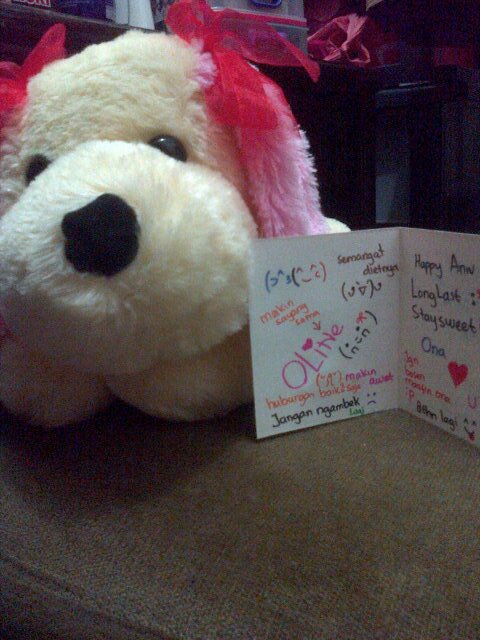 semangat
dietnya
makin
sayang
sama
OLiNe
makin awet
hubungan baik2 saja
Jangan ngambek
lagi
Happy Anniv
Longlast
Stay sweet
Ona
jgn
bosen
maafin ona
:p